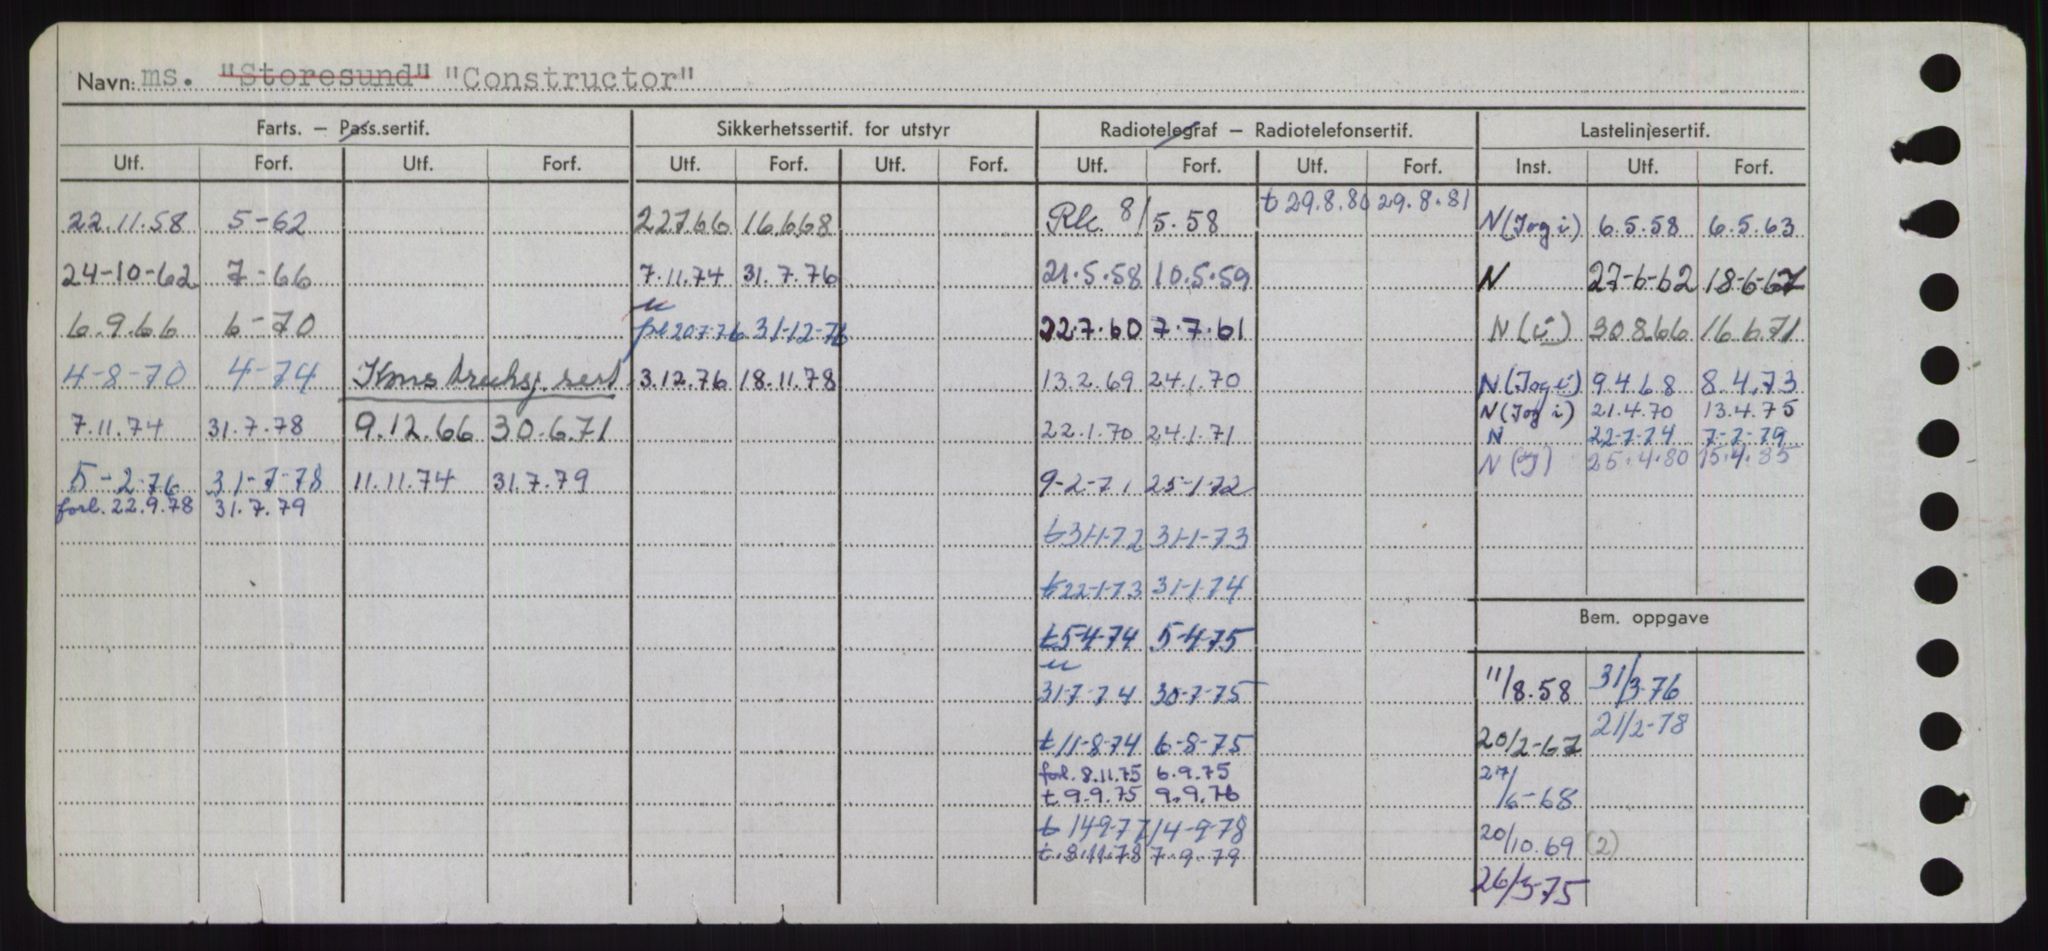 Navn: ms. "Storesund" "Constructor"
Farts. – Pass.sertif. Sikkerhetssertif. for utstyr Radiotelegraf – Radiotelefonsertif. Lastelinjesertif.
Utf. Forf. Utf. Forf. Utf. Forf. Utf. Forf. Utf. Forf. Utf. Forf. Inst. Utf. Forf.
t 29.8.80 29.8.81
22.11.58 5-62 22.7.66 16.6.68 Rk. 8/5.58 N (J og i) 6.5.58 6.5.63
24-10-62 7-66 7.11.74 31.7.76 21.5.58 10.5.59 N 27-6-62 18-6-67
6.9.66 6-70 20.7.76 31-12-76 22.7.60 7.7.61 N (i) 30.8.66 16.6.71
4-8-70 4-74 sert 3.12.76 18.11.78 13.2.69 24.1.70 N (J og i) 9.4.68 8.4.73
N (J og i) 21.4.70 13.4.75
7.11.74 31.7.78 9.12.66 30.6.71 22.1.70 24.1.71 N 22-7-74 7-7-79
N 25.4.80 15.4.85
5-2-76 31-7-78 11.11.74 31.7.79 9-2-71 25-1-72
forl. 22.9.78 31.7.79
t 31-1-72 31-1-73
t 22-1-73 31-1-74
Bem. oppgave
t 5-4-74 5-4-75
31-7-74 30-7-75 11/8.58 31/3-76
t 11-8-74 6-8-75 20/2-67 21/2-78
forl. 8.11.75 6.9.75
t 9.9.75 9.9.76 27/6-68
t 14-9-77 14-9-78
t. 8.11.78 7.9.79 20/10.69 (2)
26/3-75